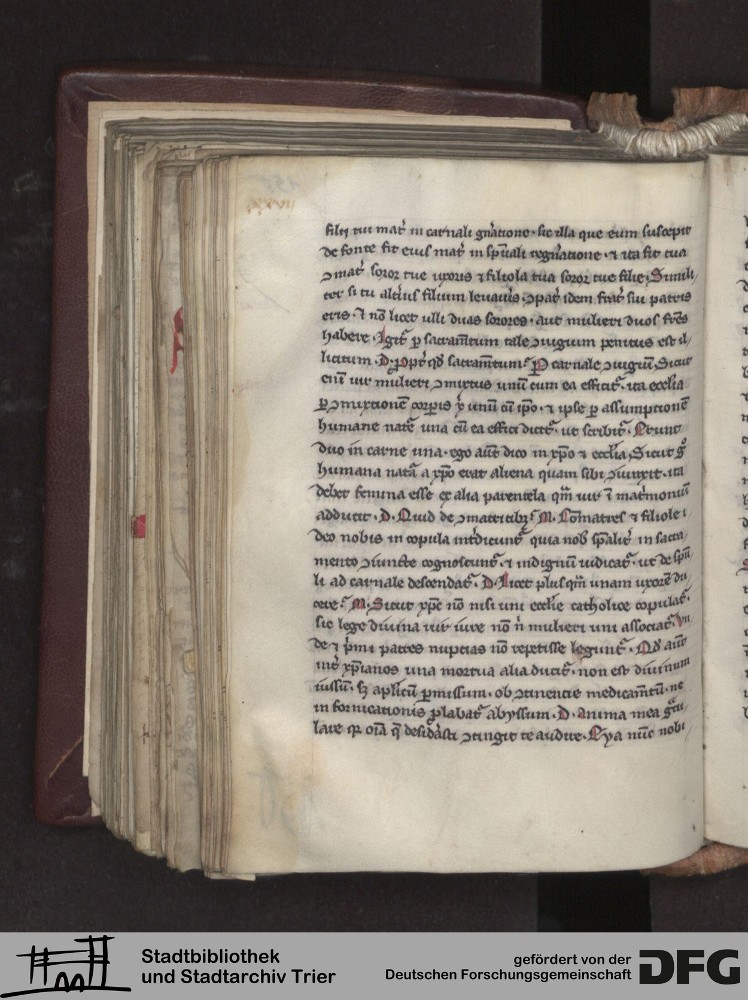 filij tui mat᷑ in carnali gnatione · sic illa que eum suscepit
de fonte fit eius mat᷑ in spūali cognatione · ⁊ ita fit tua
ↄmat᷑ soror tue uxoris ⁊ filiola tua soror tue filie · Simili
ter si tu alterius filium leuaueris · ↄpat᷑ idem frat᷑ siu patris
eris · ⁊ nō licet ulli duas sorores · aut mulieri duos frēs
habere · Igit᷑ ꝑ sacramētum tale ↄiugium penitus est il
licitum · D · ꝓpt᷑ qd sacramētum · carnale ↄiugium · Sicut
enī uir mulieri ↄmixtus unū cum ea efficit᷑ · ita ecclīa
ꝑ ↄmixtionē corpīs xp̄i unū cū ip̄o · ⁊ ipse ꝑ assumptionē
humane natē una cū ea effici dicit᷑ · ut scribit᷑ · Erunt
duo in carne una · ego aūt dico in xp̄o ⁊ ecclīa · Sicut g̊
humana natā a xp̄o erat aliena quam sibi ↄiunxit · ita
debet femina esse ex alia parentela qm̄ uir ī mat᷑moniū
adducit · D · Quid de ↄmatribꝫ · M · Cōmatres ⁊ filiole i
deo nobis in copula int᷑dicunt᷑ quia nob̄ sp̄alit᷑ in sacra
mento ↄiuncte cognoscunt᷑ · ⁊ indignū iudicat᷑ · ut de sp̄ū
li ad carnale descendat᷑ · D · Licet plusqm̄ unam uxorē du
cere · M · Sicut xp̄c nō nisi uni ecclīe catholice copulat᷑ ·
sic lege diuina uir iure nō n̄ mulieri uni associat᷑ · Vn
de ⁊ p̄mi patres nuptias nō repetisse legunt᷑ · Qd aūt
int᷑ xp̄ianos una mortua alia ducit᷑ · non est diuinum
iussū · sꝫ aplicū ꝑmissum · ob ↄtinentie medicamētū · ne
in fornicationis ꝓlabat᷑ abyssum · D · Anima mea gr̄tu
late qr oīa q̄ desidāsti ↄtingit te audire · Eya nūc nobi
Stadtbibliothek
und Stadtarchiv Trier
gefördert von der
Deutschen Forschungsgemeinschaft
DFG